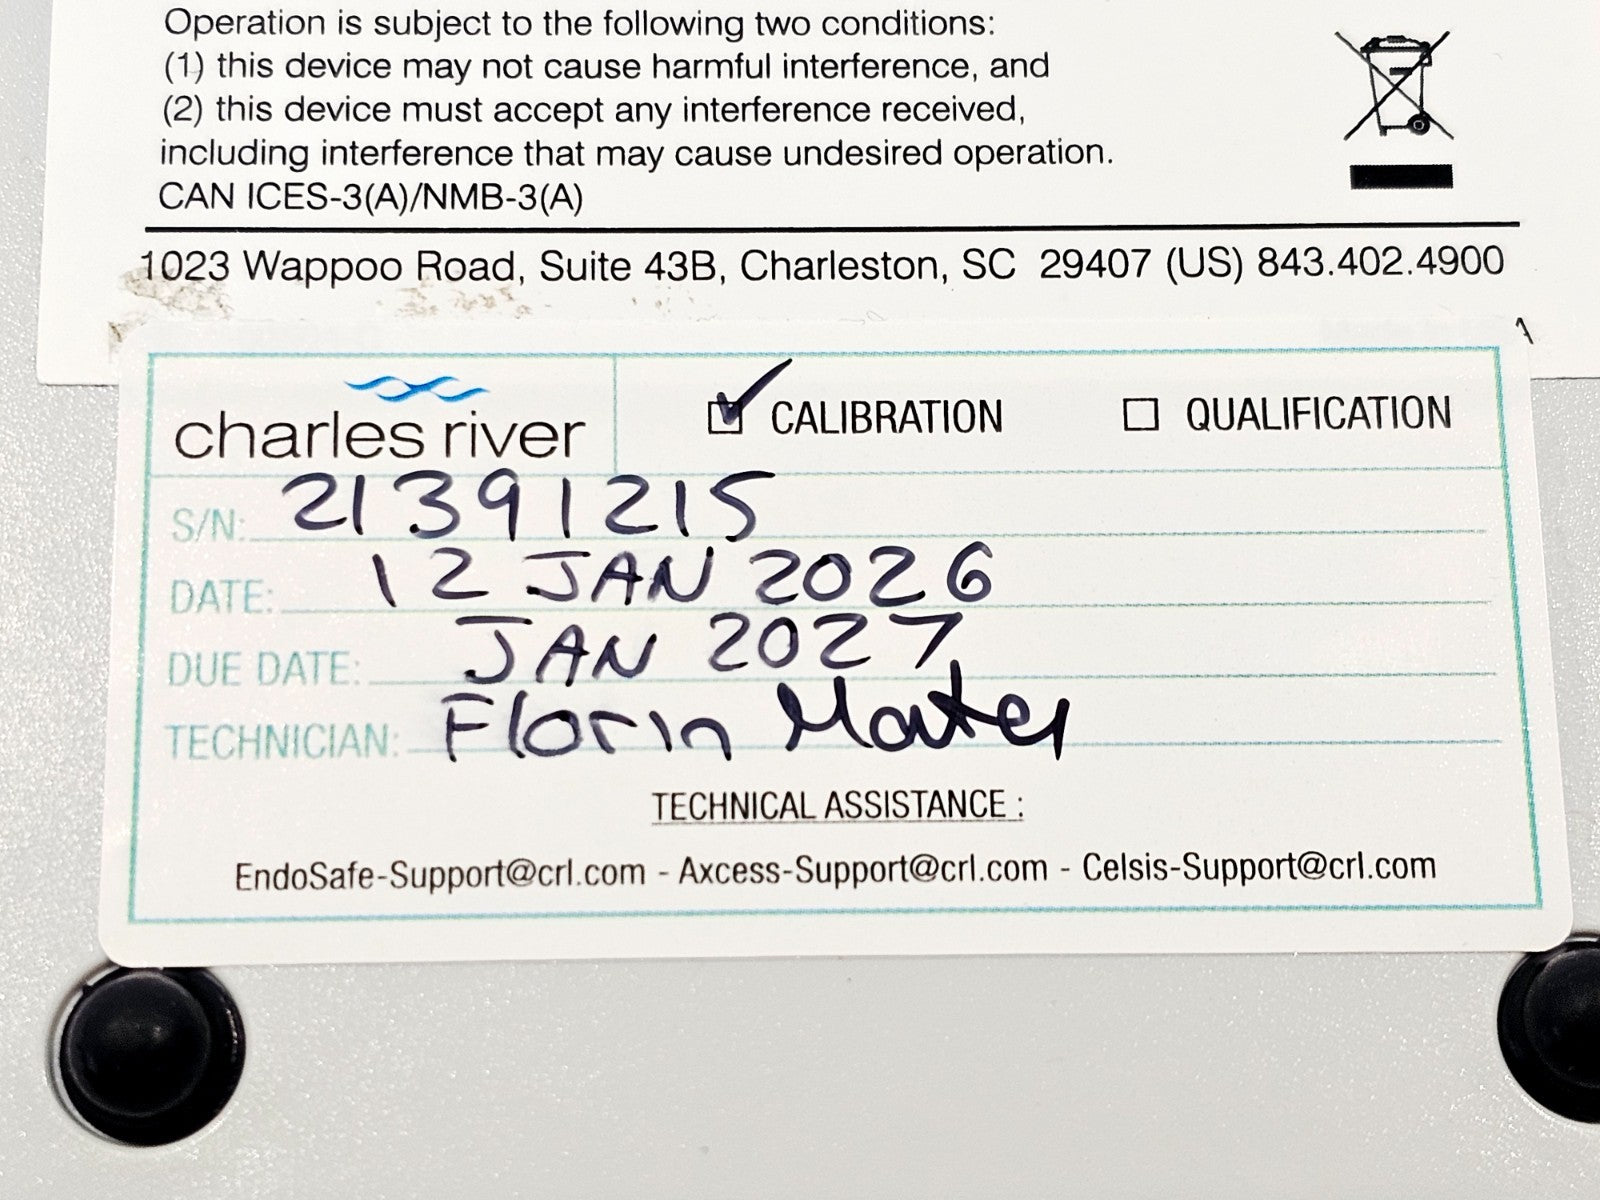 Operation is subject to the following two conditions:
(1) this device may not cause harmful interference, and
(2) this device must accept any interference received,
including interference that may cause undesired operation.
CAN ICES-3(A)/NMB-3(A)
1023 Wappoo Road, Suite 43B, Charleston, SC 29407 (US) 843.402.4900
charles river
CALIBRATION
QUALIFICATION
S/N: 21391215
DATE: 12 JAN 2026
DUE DATE: JAN 2027
TECHNICIAN: Florin Matei
TECHNICAL ASSISTANCE :
EndoSafe-Support@crl.com - Axcess-Support@crl.com - Celsis-Support@crl.com